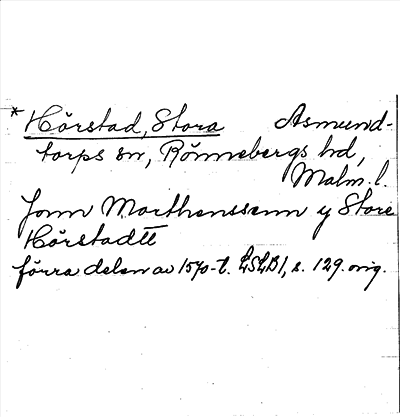 * Hörstad, Stora Asmund-
torps sn, Rönnebergs hd,
Malm. l.
Jonn Morthenssenn y Store
Hörstadtt
förra delen av 1570-t. LSLB1, s. 129. orig.